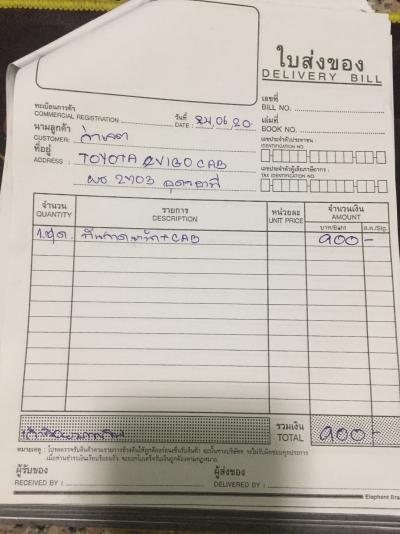 ใบส่งของ
DELIVERY BILL
ทะเบียนการค้า
COMMERCIAL REGISTRATION
วันที่
DATE : 24,06,20
เลขที่
BILL NO.
เล่มที่
BOOK NO.
นามลูกค้า
CUSTOMER:
เลขประจำตัวประชาชน
IDENTIFICATION NO.
ที่อยู่
ADDRESS : TOYOTA VIGO CAB
2703
เลขประจำตัวผู้เสียภาษีอากร
TAX IDENTIFICATION NO.
จำนวน
QUANTITY
รายการ
DESCRIPTION
หน่วยละ
UNIT PRICE
จำนวนเงิน
AMOUNT
บาท/Baht
ส.ต./Stg.
1 ชุด +CAB 900 -
รวมเงิน
TOTAL 900 -
หมายเหตุ : โปรดตรวจรับสินค้าตามรายการข้างต้นให้ถูกต้องก่อนเซ็นรับสินค้า
ผู้รับของ
RECEIVED BY :
ผู้ส่งของ
DELIVERED BY :
Elephant Bra